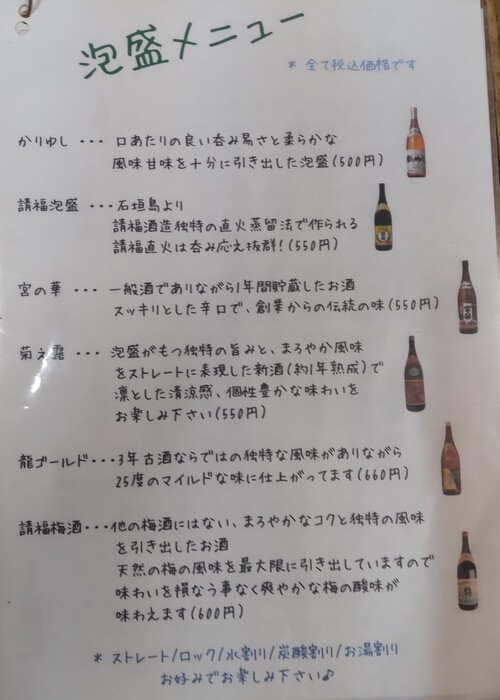 泡盛メニュー
* 全て税込価格です
かりゆし ・・・ 口あたりの良い呑み易さと柔らかな
風味甘味を十分に引き出した泡盛(500円)
請福泡盛 ・・・石垣島より
請福酒造独特の直火蒸留法で作られる
請福直火は呑み応え抜群!(550円)
宮の華 ・・・ 一般酒でありながら1年間貯蔵したお酒
スッキリとした辛口で、創業からの伝統の味(550円)
菊之露 ・・・ 泡盛がもつ独特の旨みと、まろやか風味
をストレートに表現した新酒(約1年熟成)で
凛とした清涼感、個性豊かな味わいを
お楽しみ下さい(550円)
龍ゴールド・・・3年古酒ならではの独特な風味がありながら
25度のマイルドな味に仕上がってます(660円)
請福梅酒・・・他の梅酒にはない、まろやかなコクと独特の風味
を引き出したお酒
天然の梅の風味を最大限に引き出していますので
味わいを損なう事なく爽やかな梅の酸味が
味わえます(600円)
* ストレート/ロック/水割り/炭酸割り/お湯割り
お好みでお楽しみ下さい♪